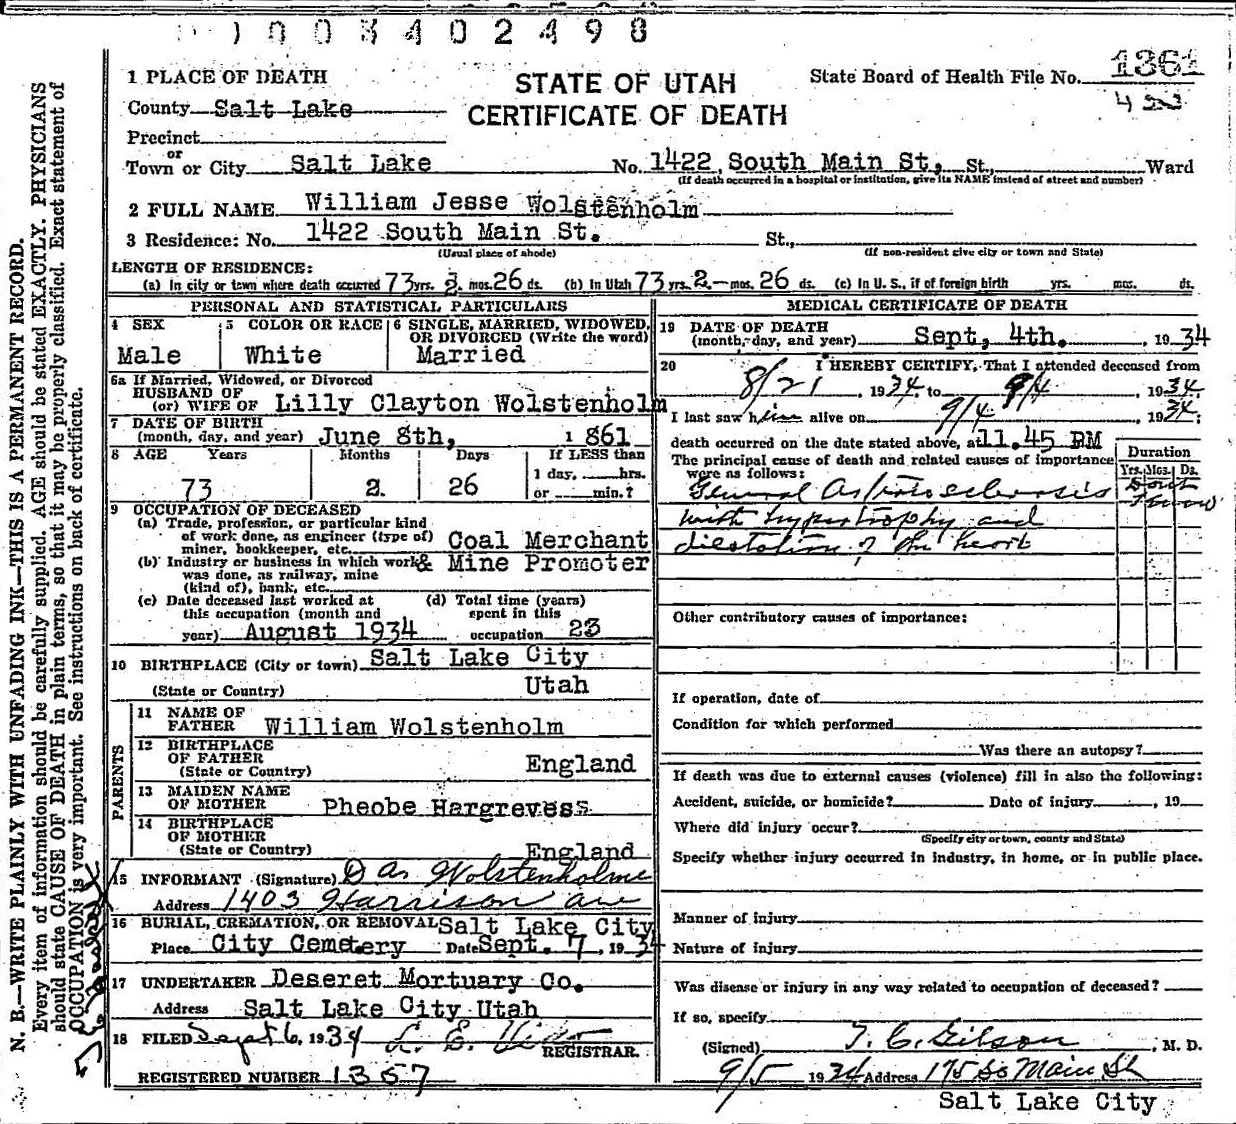 1003402498
1 PLACE OF DEATH
STATE OF UTAH
CERTIFICATE OF DEATH
State Board of Health File No. 1361
County Salt Lake
Precinct
or
Town or City Salt Lake No. 1422 South Main St, St., Ward
(If death occurred in a hospital or institution, give its NAME instead of street and number)
2 FULL NAME William Jesse Wolstenholm
3 Residence: No. 1422 South Main St. St.,
(Usual place of abode) (If non-resident give city or town and State)
LENGTH OF RESIDENCE:
(a) In city or town where death occurred 73 yrs. 2 mos. 26 ds. (b) In Utah 73 yrs. 2 mos. 26 ds. (c) In U. S., if of foreign birth yrs. mos. ds.
PERSONAL AND STATISTICAL PARTICULARS
4 SEX 5 COLOR OR RACE 6 SINGLE, MARRIED, WIDOWED,
OR DIVORCED (Write the word)
Male White Married
6a If Married, Widowed, or Divorced
HUSBAND OF
(or) WIFE OF Lilly Clayton Wolstenholm
7 DATE OF BIRTH
(month, day, and year) June 8th, 1861
8 AGE Years Months Days If LESS than
1 day, hrs.
73 2. 26 or min.?
9 OCCUPATION OF DECEASED
(a) Trade, profession, or particular kind
of work done, as engineer (type of)
miner, bookkeeper, etc. Coal Merchant
(b) Industry or business in which work & Mine Promoter
was done, as railway, mine
(kind of), bank, etc.
(c) Date deceased last worked at (d) Total time (years)
this occupation (month and spent in this
year) August 1934 occupation 23
10 BIRTHPLACE (City or town) Salt Lake City
(State or Country) Utah
PARENTS
11 NAME OF
FATHER William Wolstenholm
12 BIRTHPLACE
OF FATHER
(State or Country) England
13 MAIDEN NAME
OF MOTHER Pheobe Hargrevess
14 BIRTHPLACE
OF MOTHER
(State or Country) England
15 INFORMANT (Signature) Wolstenholme
Address 1403 Harrison ave
16 BURIAL, CREMATION, OR REMOVAL Salt Lake City
Place City Cemetery Date Sept. 7, 1934
17 UNDERTAKER Deseret Mortuary Co.
Address Salt Lake City Utah
18 FILED Sept 6, 1934
REGISTRAR.
REGISTERED NUMBER 1357
MEDICAL CERTIFICATE OF DEATH
19 DATE OF DEATH
(month, day, and year) Sept, 4th. , 1934
20 I HEREBY CERTIFY, That I attended deceased from
8/21, 1934 to 9/4, 1934
I last saw him alive on 9/4 1934;
death occurred on the date stated above, at 11.45 PM
The principal cause of death and related causes of importance
were as follows:
Duration
Yrs. Mos. Ds.
General Arteriosclerosis Dont
Know
with hypertrophy and
dilatation of the heart
Other contributory causes of importance:
If operation, date of
Condition for which performed
Was there an autopsy?
If death was due to external causes (violence) fill in also the following:
Accident, suicide, or homicide? Date of injury , 19
Where did injury occur?
(Specify city or town, county and State)
Specify whether injury occurred in industry, in home, or in public place.
Manner of injury
Nature of injury
Was disease or injury in any way related to occupation of deceased?
If so, specify
(Signed) T. C. Gibson, M. D.
9/5 1934 Address 175 So Main St
Salt Lake City
N. B.—WRITE PLAINLY WITH UNFADING INK—THIS IS A PERMANENT RECORD.
Every item of information should be carefully supplied. AGE should be stated EXACTLY. PHYSICIANS
should state CAUSE OF DEATH in plain terms, so that it may be properly classified. Exact statement of
OCCUPATION is very important. See instructions on back of certificate.